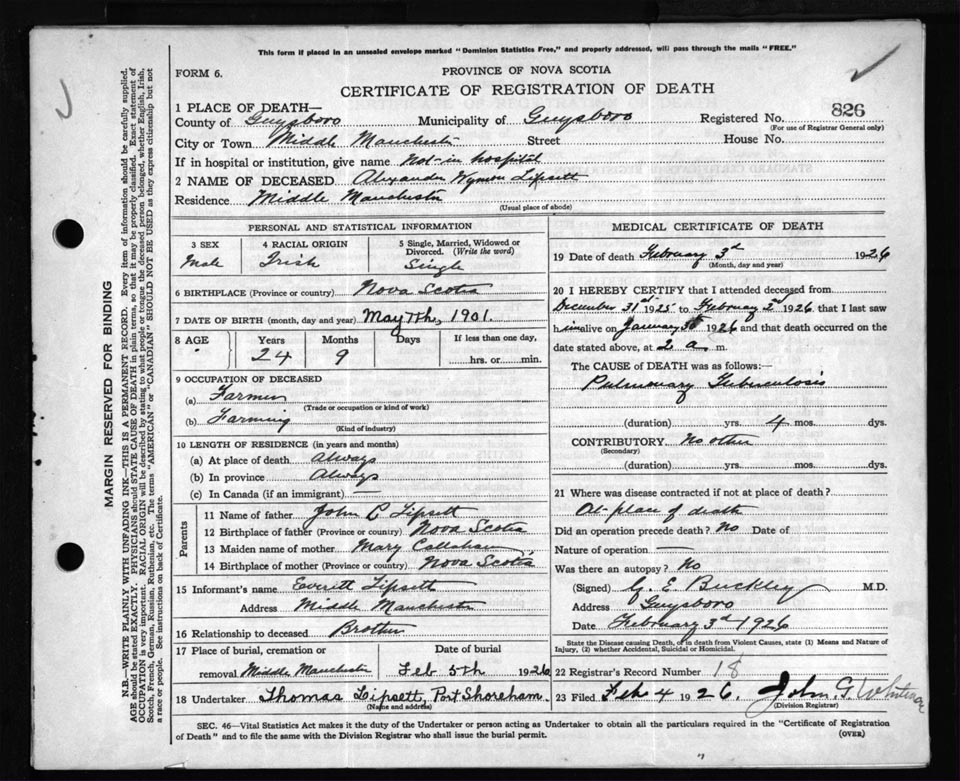 This form if placed in an unsealed envelope marked "Dominion Statistics Free," and properly addressed, will pass through the mails "FREE."
FORM 6.
PROVINCE OF NOVA SCOTIA
CERTIFICATE OF REGISTRATION OF DEATH
1 PLACE OF DEATH—
County of Guysboro Municipality of Guysboro Registered No. 826
(For use of Registrar General only)
City or Town Middle Manchester Street House No.
If in hospital or institution, give name Not in hospital
2 NAME OF DECEASED Alexander Wymon Lipsett
Residence Middle Manchester
(Usual place of abode)
MARGIN RESERVED FOR BINDING
N.B.—WRITE PLAINLY WITH UNFADING INK—THIS IS A PERMANENT RECORD. Every item of information should be carefully supplied.
AGE should be stated EXACTLY. PHYSICIANS should STATE CAUSE OF DEATH in plain terms, so that it may be properly classified. Exact statement of
OCCUPATION is very important. RACIAL ORIGIN will be described by stating to what people or tongue the deceased person belonged, whether English, Irish,
Scotch, French, German, Russian, Ruthenian, etc. The terms "AMERICAN" or "CANADIAN" SHOULD NOT BE USED as they express citizenship but not
a race or people. See instructions on back of Certificate.
PERSONAL AND STATISTICAL INFORMATION
3 SEX 4 RACIAL ORIGIN 5 Single, Married, Widowed or
Divorced. (Write the word)
Male Irish Single
6 BIRTHPLACE (Province or country) Nova Scotia
7 DATE OF BIRTH (month, day and year) May 7th, 1901.
8 AGE Years Months Days If less than one day,
24 9 hrs. or min.
9 OCCUPATION OF DECEASED
(a) Farmer
(Trade or occupation or kind of work)
(b) Farming
(Kind of industry)
10 LENGTH OF RESIDENCE (in years and months)
(a) At place of death Always
(b) In province Always
(c) In Canada (if an immigrant) —
Parents
11 Name of father John C Lipsett
12 Birthplace of father (Province or country) Nova Scotia
13 Maiden name of mother Mary Callahan
14 Birthplace of mother (Province or country) Nova Scotia
15 Informant's name Everett Lipsett
Address Middle Manchester
16 Relationship to deceased Brother
17 Place of burial, cremation or Date of burial
removal Middle Manchester Feb 5th 1926
18 Undertaker Thomas Lipsett, Port Shoreham
(Name and address)
MEDICAL CERTIFICATE OF DEATH
19 Date of death February 3rd 1926
(Month, day and year)
20 I HEREBY CERTIFY that I attended deceased from
December 31st 1925 to February 2nd 1926 that I last saw
him alive on January 1926 and that death occurred on the
date stated above, at 2 a m.
The CAUSE of DEATH was as follows:—
Pulmonary Tuberculosis
(duration) yrs. 4 mos. dys.
CONTRIBUTORY No other
(Secondary)
(duration) yrs. mos. dys.
21 Where was disease contracted if not at place of death?
At place of death
Did an operation precede death? No Date of
Nature of operation —
Was there an autopsy? No
(Signed) G. E. Buckley M.D.
Address Guysboro
Date February 3rd 1926
State the Disease causing Death, or in death from Violent Causes, state (1) Means and Nature of
Injury, (2) whether Accidental, Suicidal or Homicidal.
22 Registrar's Record Number 18
23 Filed Feb 4 1926. John G.
(Division Registrar)
SEC. 46—Vital Statistics Act makes it the duty of the Undertaker or person acting as Undertaker to obtain all the particulars required in the "Certificate of Registration
of Death" and to file the same with the Division Registrar who shall issue the burial permit. (OVER)